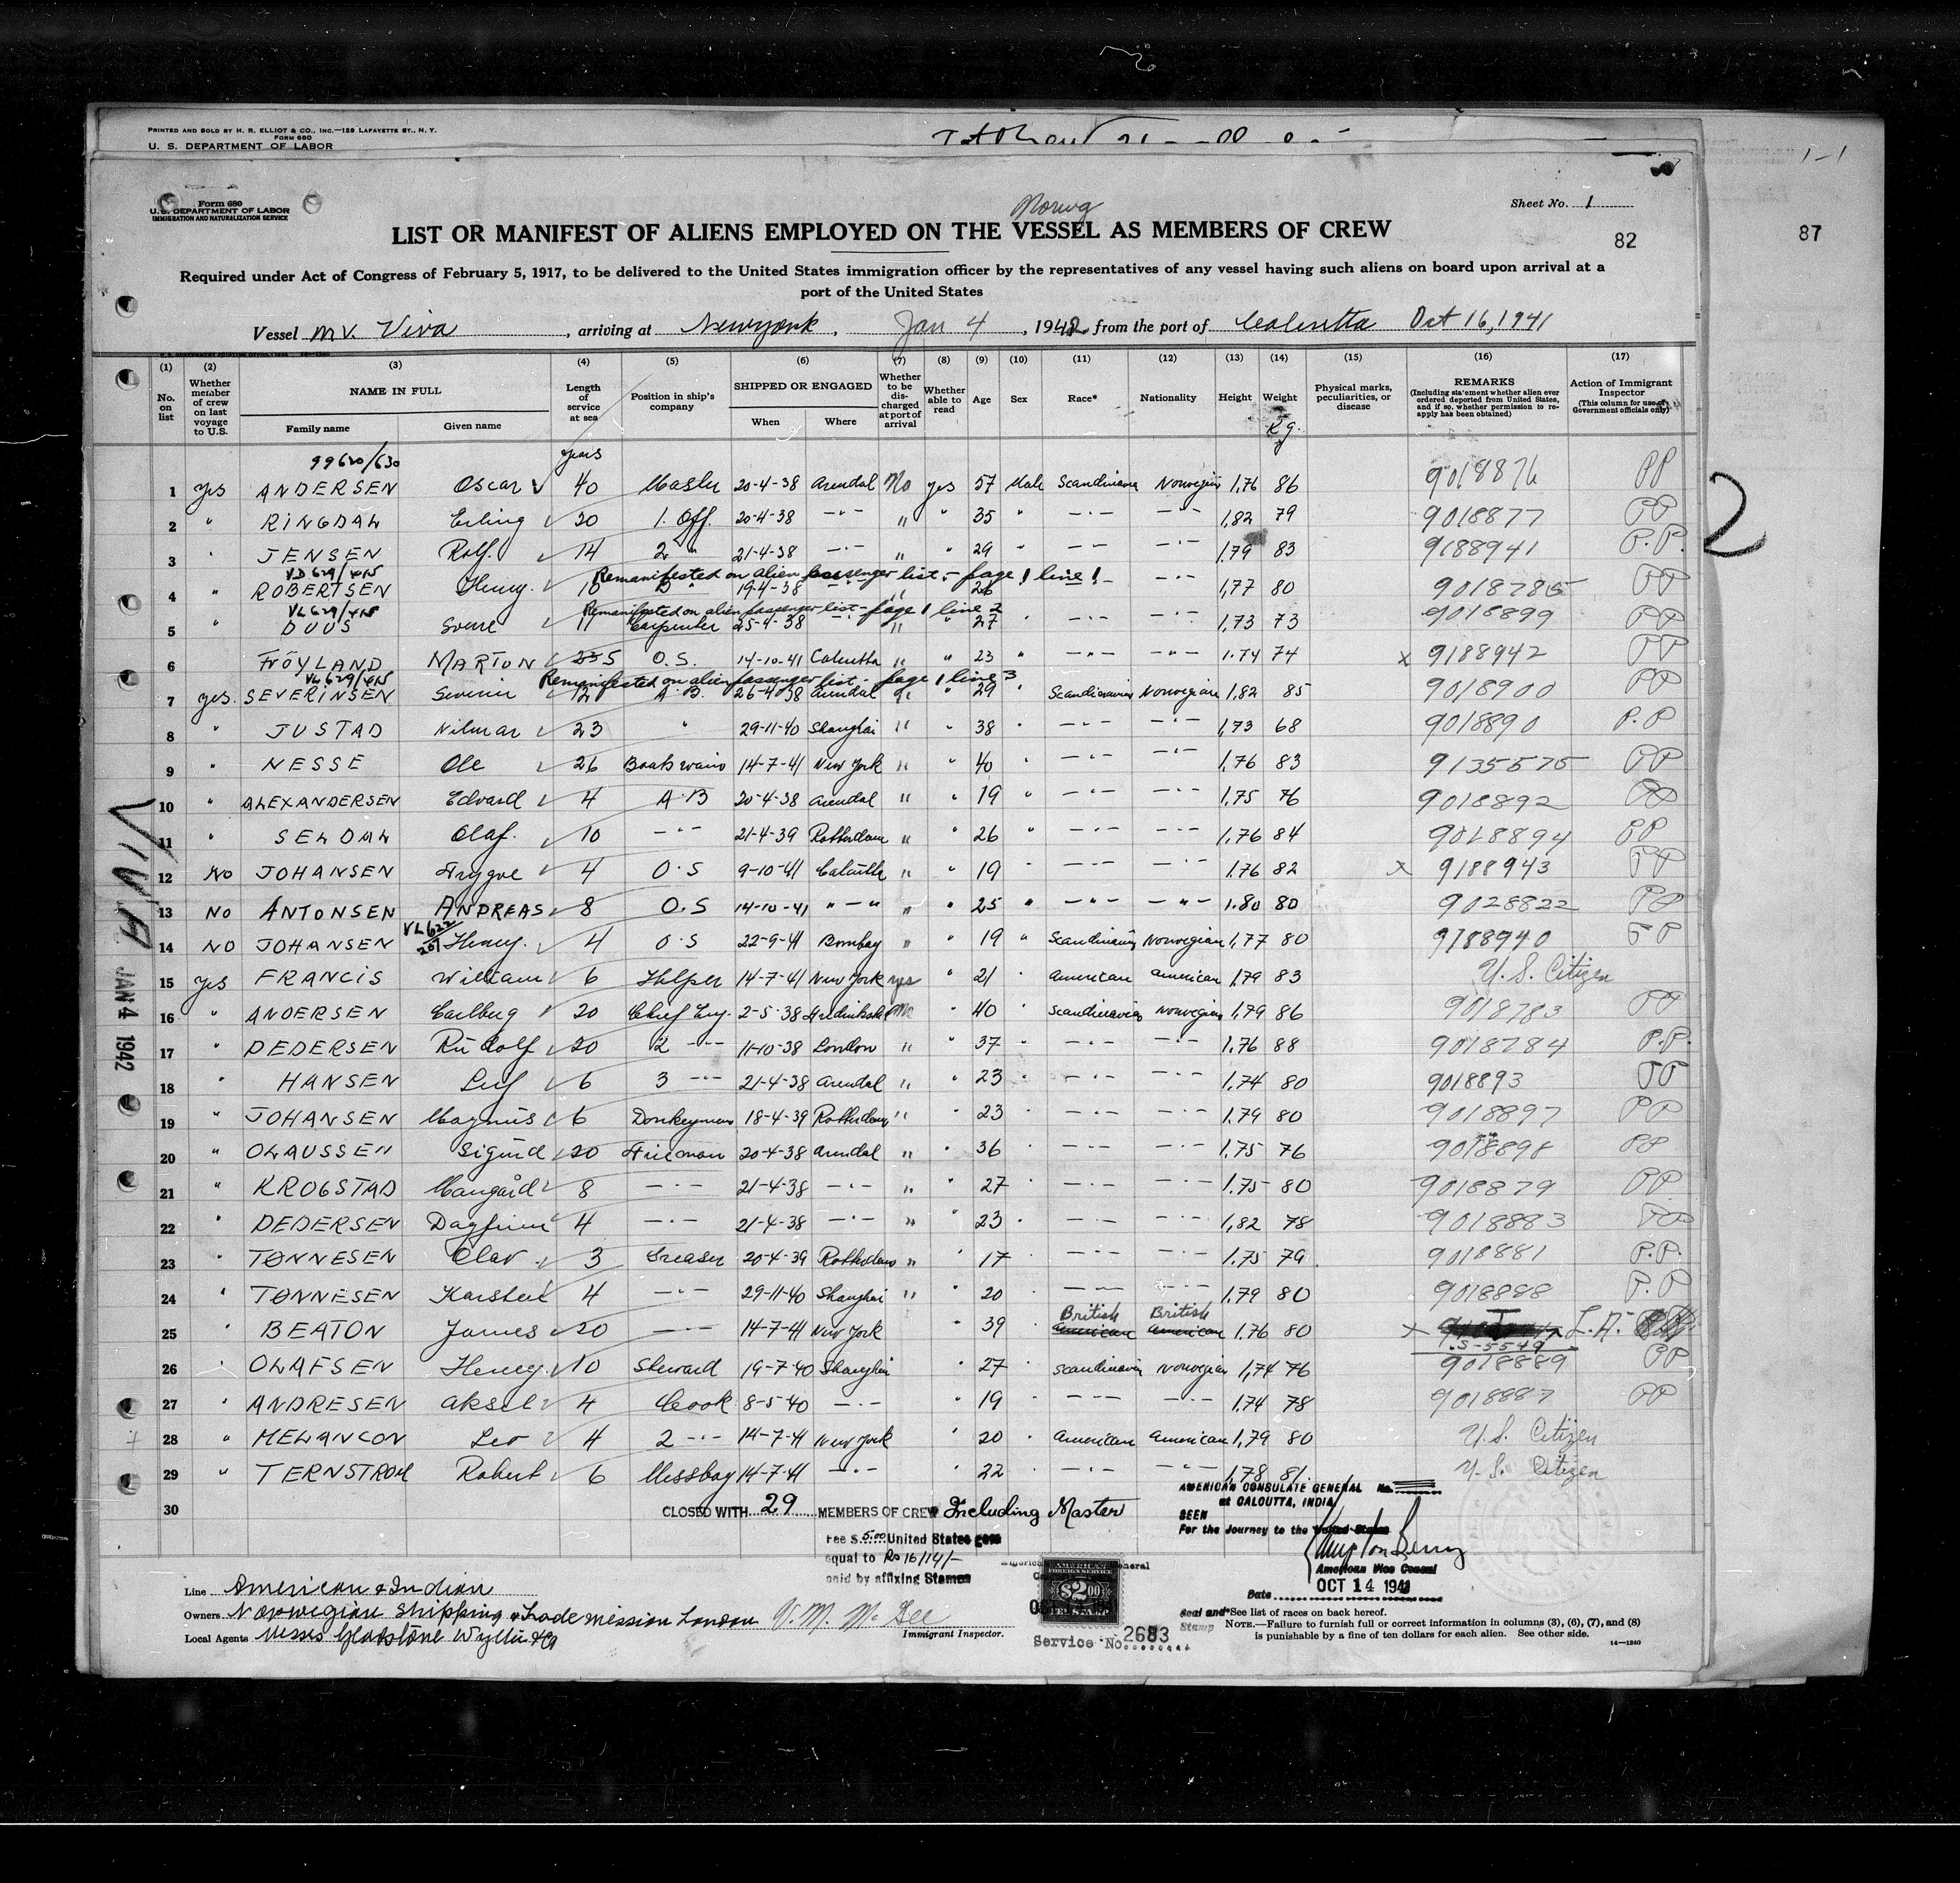 PRINTED AND SOLD BY H. R. ELLIOT & CO., INC.—129 LAFAYETTE ST., N. Y.
FORM 680
U. S. DEPARTMENT OF LABOR
Form 680
U. S. DEPARTMENT OF LABOR
IMMIGRATION AND NATURALIZATION SERVICE
Norwg
Sheet No. 1
LIST OR MANIFEST OF ALIENS EMPLOYED ON THE VESSEL AS MEMBERS OF CREW
82
87
Required under Act of Congress of February 5, 1917, to be delivered to the United States immigration officer by the representatives of any vessel having such aliens on board upon arrival at a
port of the United States
Vessel M.V. Viva, arriving at New york, Jan 4, 1942 from the port of Calcutta Oct 16, 1941
(1) (2) (3) (4) (5) (6) (7) (8) (9) (10) (11) (12) (13) (14) (15) (16) (17)
No. on list
Whether member of crew on last voyage to U.S.
NAME IN FULL
Family name Given name
Length of service at sea
Position in ship's company
SHIPPED OR ENGAGED
When Where
Whether to be discharged at port of arrival
Whether able to read
Age
Sex
Race*
Nationality
Height
Weight
Kg.
Physical marks, peculiarities, or disease
REMARKS
(Including statement whether alien ever ordered deported from United States, and if so, whether permission to reapply has been obtained)
Action of Immigrant Inspector
(This column for use of Government officials only)
99620/630 years
1 yes ANDERSEN Oscar 40 Master 20-4-38 Arendal No yes 57 Male Scandinavia Norwegian 1,76 86 9018876 PP
2 " RINGDAL Erling 20 1. Off. 20-4-38 -"- " " 35 " -"- -"- 1,82 79 9018877 PP
3 " JENSEN Rolf. 14 2 " 21-4-38 -"- " " 29 " -"- -"- 1.79 83 9188941 P.P.
VD 629/415 Remanifested on alien passenger list - page 1 line 1
4 " ROBERTSEN Henry. 10 19-4-38 26 -"- 1,77 80 9018785 PP
VL 629/415 Remanifested on alien passenger list - page 1 line 2
5 " DUUS Sverre 11 Carpenter 25-4-38 -"- " 27 " -"- -"- 1,73 73 9018899 PP
6 FRÖYLAND MARTON 5 O.S. 14-10-41 Calcutta " " 23 " -"- -"- 1.74 74 x 9188942 PP
VL 629/415 Remanifested on alien passenger list - page 1 line 3
7 yes. SEVERINSEN Severin 12 A.B. 26-4-38 Arendal " " 29 " Scandinavian Norwegian 1,82 85 9018900 PP
8 " JUSTAD Hilmar 23 " 29-11-40 Shanghai " " 38 " -"- -"- 1,73 68 9018890 P.P
9 " NESSE Ole 26 Boatswain 14-7-41 New York " " 40 " -"- -"- 1.76 83 9135575 PP
10 " ALEXANDERSEN Edvard 4 A.B 20-4-38 Arendal " " 19 " -"- -"- 1.75 76 9018892 PP
11 " SELDAL Olaf. 10 -"- 21-4-39 Rotterdam " " 26 " -"- -"- 1,76 84 9018894 PP
12 No JOHANSEN Trygve 4 O.S 9-10-41 Calcutta " " 19 " -"- -"- 1.76 82 x 9188943 PP
13 NO ANTONSEN ANDREAS 8 O.S 14-10-41 "-" " " 25 " -"- -"- 1.80 80 9028822 PP
VL622/201
14 NO JOHANSEN Henry. 4 O.S 22-9-41 Bombay " " 19 " Scandinavia Norwegian 1,77 80 9188940 PP
15 Yes FRANCIS William 6 Helper 14-7-41 New York yes " 21 " American American 1,79 83 U. S. Citizen
16 " ANDERSEN Carlberg 20 Chief Eng. 2-5-38 No " 40 " Scandinavia Norwegian 1,79 86 9018783 PP
17 " PEDERSEN Rudolf 20 2 -"- 11-10-38 London " " 37 " -"- -"- 1.76 88 9018784 P.P.
18 " HANSEN Leif 6 3 -"- 21-4-38 Arendal " " 23 " -"- -"- 1,74 80 9018893 PP
19 " JOHANSEN Magnus 6 Donkeyman 18-4-39 Rotterdam " " 23 " -"- -"- 1.79 80 9018897 PP
20 " OLAUSSEN Sigurd 20 Fireman 20-4-38 Arendal " " 36 -"- -"- 1.75 76 9018898 PP
21 " KROGSTAD Mangård 8 -"- 21-4-38 -"- " " 27 " -"- -"- 1.75 80 9018879 PP
22 " PEDERSEN Dagfinn 4 -"- 21-4-38 -"- " 23 " -"- -"- 1,82 78 9018883 PP
23 " TØNNESEN Olav 3 Greaser 20-4-39 Rotterdam " " 17 " -"- -"- 1.75 79 9018881 P.P.
24 " TØNNESEN Karsten 4 -"- 29-11-40 Shanghai " " 20 -"- -"- 1.79 80 9018888 P.P
25 " BEATON James 20 -"- 14-7-41 New York " 39 British American British American 1,76 80 x S-5549 L.A.
26 " OLAFSEN Henry. 10 Steward 19-7-40 Shanghai " 27 " Scandinavia Norwegian 1,74 76 9018889 PP
27 " ANDRESEN Aksel 4 Cook 8-5-40 -"- " 19 " -"- -"- 1.74 78 9018887 PP
28 " MELANCON Leo 4 2 -"- 14-7-41 New York " 20 " American American 1,79 80 U. S. Citizen
29 " TERNSTROM Robert 6 Messboy 14-7-41 -"- " 22 " -"- -"- 1,78 81 U. S. Citizen
30
CLOSED WITH 29 MEMBERS OF CREW Including Master
Fee $ 5.00 United States gold
equal to Rs 16/14/-
paid by affixing Stamps
AMERICAN CONSULATE GENERAL No.
at CALCUTTA, INDIA
SEEN
For the Journey to the United States
American Vice Consul
Date OCT 14 1941
Seal and Stamp
AMERICAN
FOREIGN SERVICE
$2.00
FEE STAMP
Service No. 2683
Line American & Indian
Owners Norwegian Shipping & Trade mission London
Local Agents Messrs Gladstone Wyllie & Co
V. M. McGee
Immigrant Inspector.
*See list of races on back hereof.
NOTE.—Failure to furnish full or correct information in columns (3), (6), (7), and (8)
is punishable by a fine of ten dollars for each alien. See other side.
14—1240
VIVA
JAN 4 1942
2
1-1